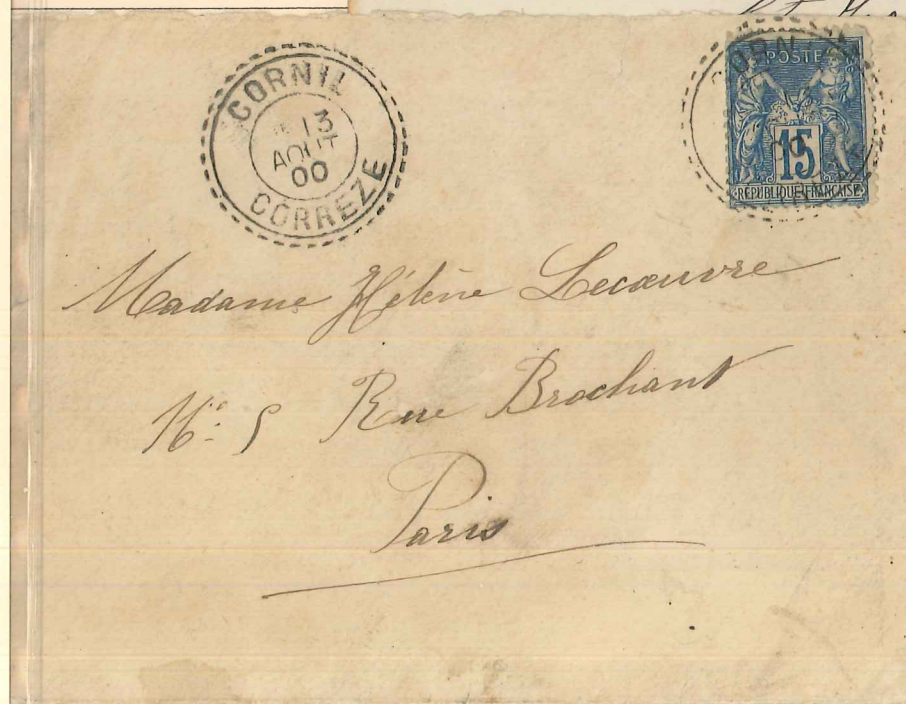 CORNIL
13
AOUT
00
CORREZE
CORN
POSTE
00
15
REPUBLIQUE FRANCAISE
Madame Hélène Lecœuvre
N° 5 Rue Brochant
Paris